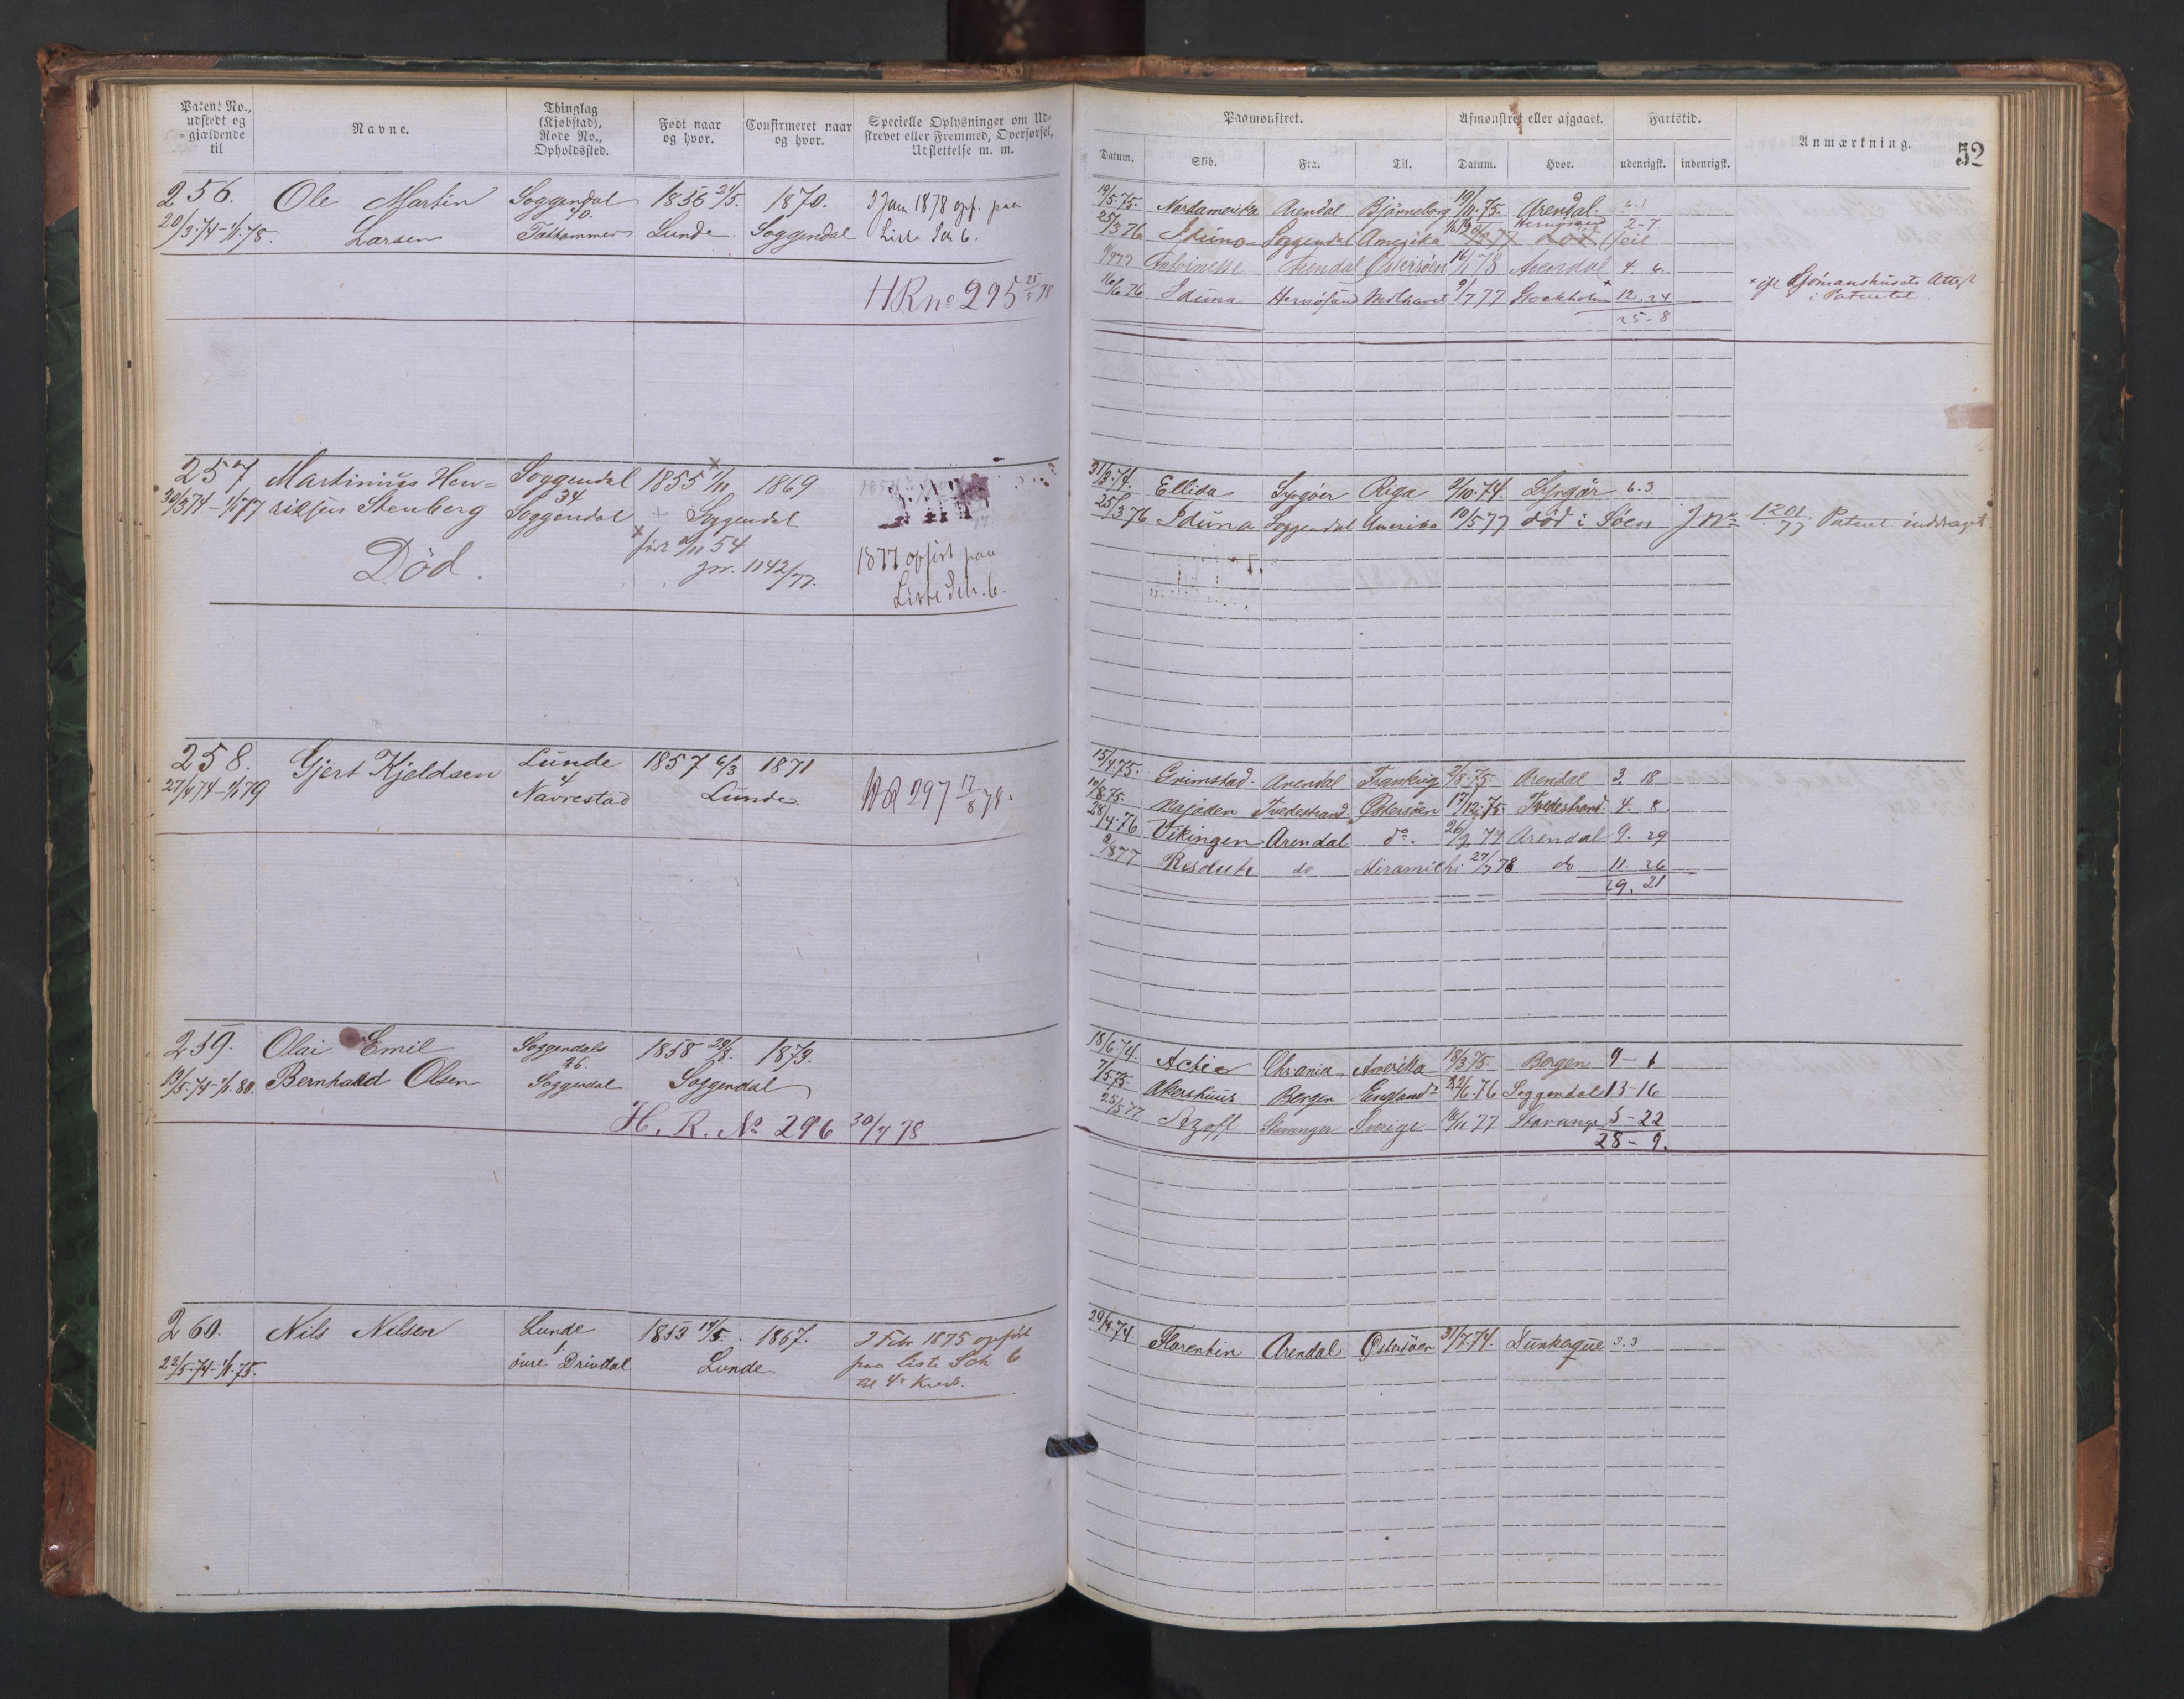 Patent No., udstedt og gjældende til
Navne.
Thinglag (Kjøbstad), Rode No., Opholdssted.
Født naar og hvor.
Confirmeret naar og hvor.
Specielle Oplysninger om Udskrevet eller Fremmed, Overførsel, Udslettelse m. m.
Paamønstret.
Afmønstret eller afgaaet.
Fartstid.
Anmærkning.
52
Datum. Skib. Fra. Til. Datum. Hvor. udenrigsk. indenrigsk.
256. Ole Martin Soggendal 1856 24/5. 1870. I Jan 1878 opf. paa
20/3.74-1/1.78. Larsen 40. Lunde Soggendal Liste Sch 6.
H R no 295 25/5 78
19/5.75. Nordamerika Arendal Bjørneborg 19/11.75. Arendal 6.1
25/3 76 Iduna Soggendal Amerika Hernøsand 2-7 feil
Antoinette Arendal Østersøen 16/1 78 Arendal 4 6
16/6 76 Iduna Hernøsand Midhavet 9/7 77 Stockholm 12. 24
25-8
* ifl Sjømanshusets Attest
i Patentet
257. Martinius Hen= Soggendal 1855 1/11 1869
30/3 74-1/1 77 riksen Stenberg 34 Soggendal + Soggendal
Død. før 54
jnr. 1142/77.
1877 opført paa
Liste Sch. 6.
31/3.74. Ellida Lyngøer Riga 9/10.74. Lyngør 6.3
25/3 76 Iduna Soggendal Amerika 10/5 77 død i Søen J No 1201/77 Patent inddraget
258. Gjert Kjeldsen Lunde 1857 6/3 1871
27/4 74-1/1 79 4 Navrestad Lunde
H R 297 17/8 78.
15/4.75. Grimstad Arendal Frankrig 2/8.75. Arendal 3. 18
10/8.75. Najaden Tvedestrand Østersøen 17/12.75. Tvedestrand 4. 8
28/4.76 Vikingen Arendal do. 26/2 77 Arendal 9. 29
2/8 77 Resolute do Miramichi 27/7 78 do 11. 26
29. 21
259. Olai Emil Soggendals 1858 29/8. 1873.
19/5.74-1/1.80. Bernhard Olsen 26. Soggendal Soggendal
H. R. No 296 30/7 78
18/6.74. Actie Chrania Amerika 18/3.75. Bergen 9 - 1
7/5.75. Akershuus Bergen England 22/6.76 Soggendal 13-16
25/5 77 Azoff Stavanger Sverige 16/11 77 Stavanger 5-22
28-9.
260. Nils Nilsen Lunde 1853 14/5. 1867. I Febr 1875 opført
22/5.74-1/1.75. 1 øvre Drivdal Lunde paa liste Sch 6
til 4e Kreds.
29/4.74. Florentin Arendal Østersøen 31/7.74. Dunkerque 3.3